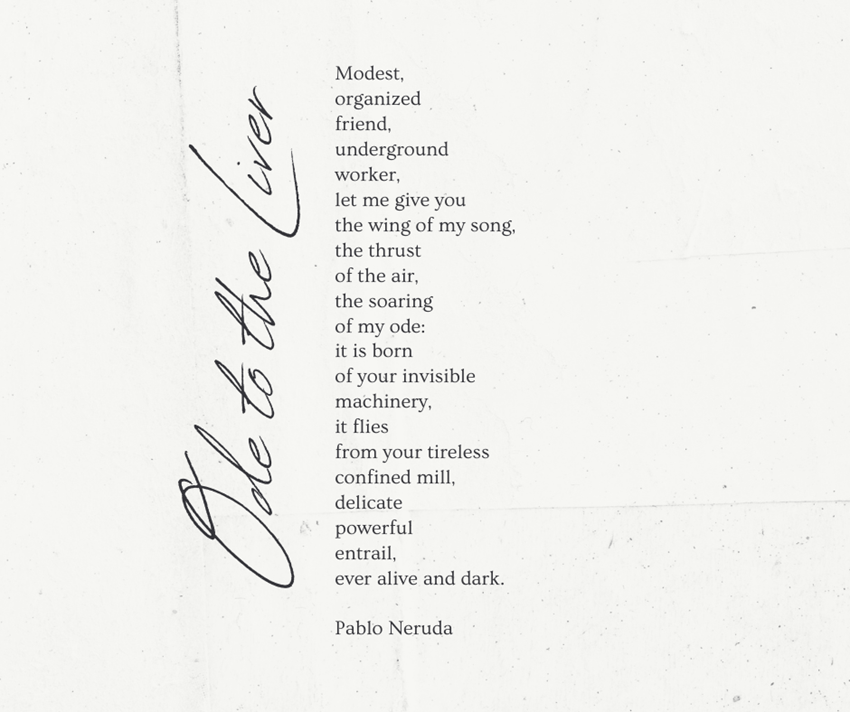 Ode to the Liver
Modest,
organized
friend,
underground
worker,
let me give you
the wing of my song,
the thrust
of the air,
the soaring
of my ode:
it is born
of your invisible
machinery,
it flies
from your tireless
confined mill,
delicate
powerful
entrail,
ever alive and dark.
Pablo Neruda